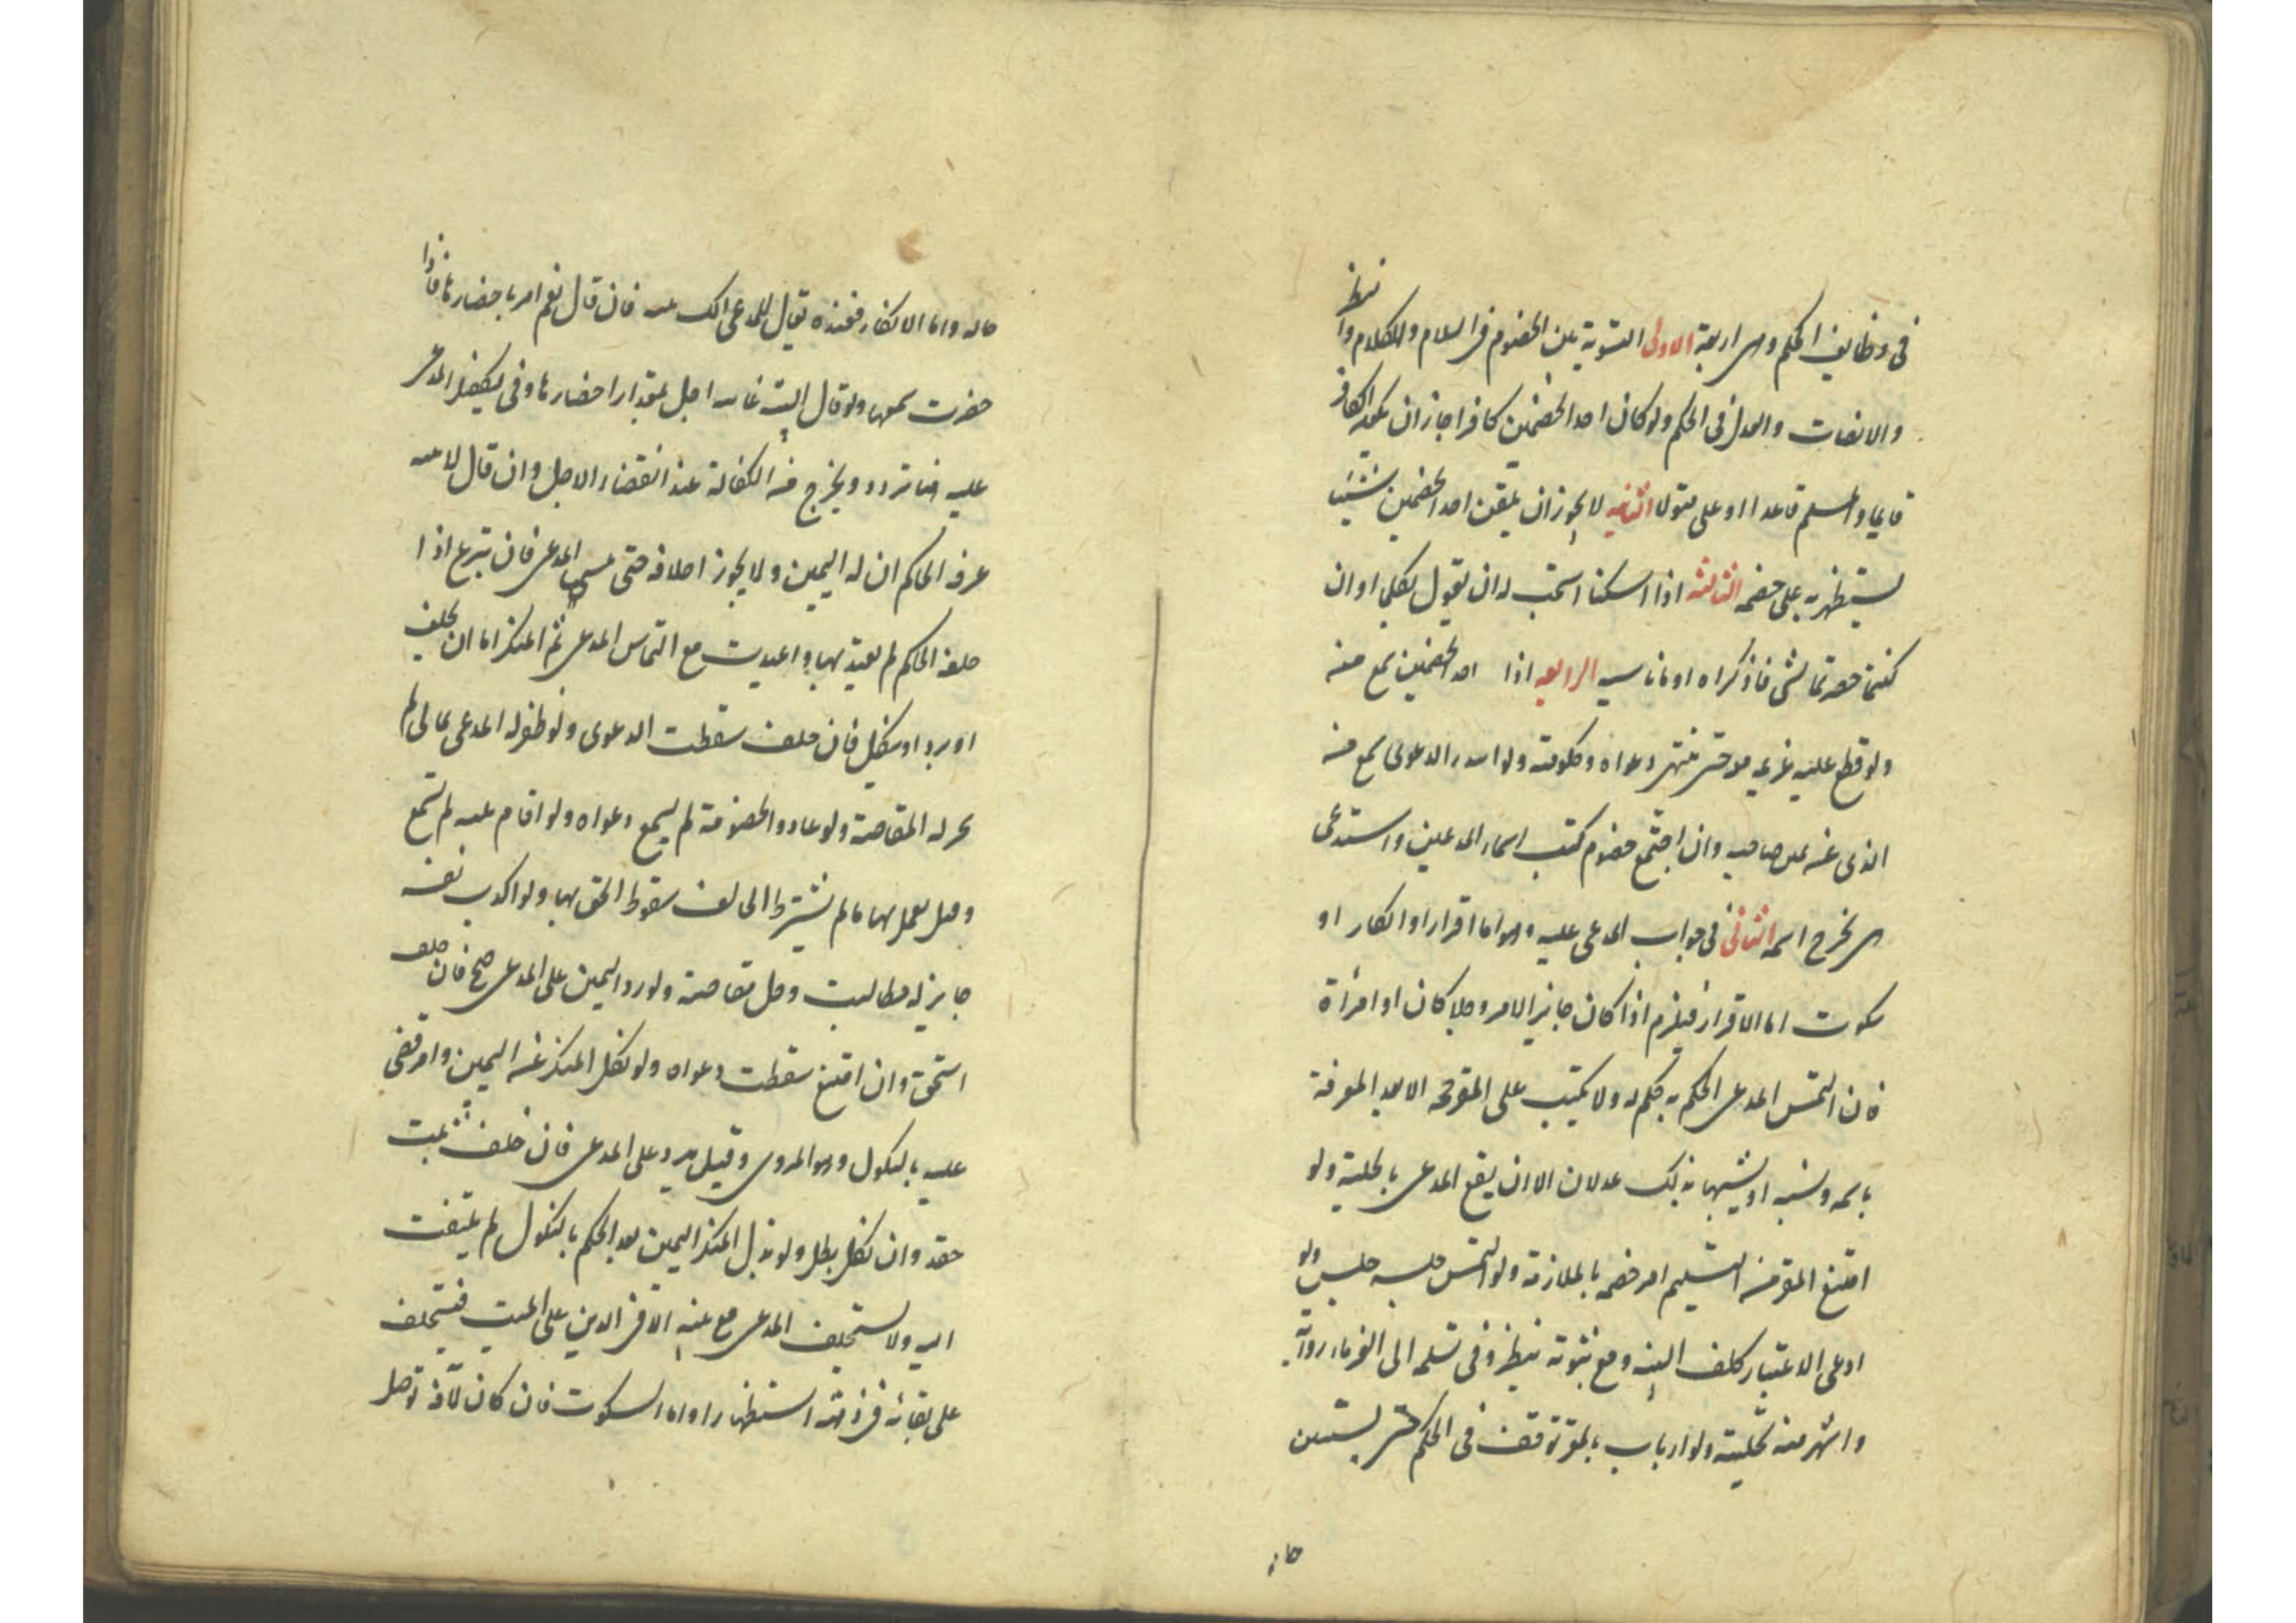 في وظايف الحكم وهى اربعة الاولى التسوية بين الخصوم فى السلام والكلام والنظر
والانصات والعدل في الحكم ولو كان احد الخصمين كافرا جاز ان يكون الكافر
قايما والمسلم قاعدا او على منزلا الثانيه لا يجوز ان يلقن احد الخصمين شيئا
يستظهر به على خصمه الثالثة اذا سكتا استحب له ان يقول تكلما او ان
كنتما حضرتما لشى فاذكراه او ما ناسبه الرابعه اذا احد الخصمين سمع منه
ولو قطع عليه غريمه حتى ينتهى دعواه وحكومته ولو ابتدر الدعوى سمع من
الذى عن يمين صاحبه وان اجتمع خصوم كتب اسماء المدعين واستدعى
من يخرج اسمه الثانى في جواب المدعى عليه وهو اما اقرار او انكار او
سكوت اما الاقرار فيلزم اذا كان جايز الامر رجلا كان او امرأة
فان التمس المدعى الحكم به حكم له ولا يكتب على المقر حجة الا بعد المعرفة
باسمه ونسبه او يشهد بذلك عدلان الا ان يقنع المدعى بالحلية ولو
امتنع المقر من التسليم امر خصمه بالملازمة ولو التمس حبسه حبس ولو
ادعى الاعتبار كلف البينه ومع ثبوته ينظر وفى تسلمه الى الغرماء رواية
واشهر منه تخليته ولو ارتاب بالمقر توقف في الحكم حتى يستبين
حاله
حاله واما الانكار فعنده يقال للمدعى الك بينه فان قال نعم امر باحضارها فاذا
حضرت سمعها ولو قال البينة غائبه اجل بمقدار احضارها وفى تكفيل المدعى
عليه هنا تردد ويخرج من الكفالة عند انقضاء الاجل وان قال لا بينه
عرف الحاكم ان له اليمين ولا يجوز احلافه حتى يلتمس المدعى فان تبرع اذا
حلفه الحاكم لم يعتد بها واعيدت مع التماس المدعى ثم المنكر اما ان يحلف
او يرد او ينكل فان حلف سقطت الدعوى ولو ظفر له المدعى بمال لم
يجز له المقاصة ولو عاود الخصومة لم يسمع دعواه ولو اقام بينه لم تسمع
وقيل يعمل بها ما لم يشترط الحالف سقوط الحق بها ولو اكذب نفسه
جاز له مطالبته وحل مقاصته ولو رد اليمين على المدعى صح فان حلف
استحق وان امتنع سقطت دعواه ولو نكل المنكر عن اليمين واصر قضى
عليه بالنكول وهو المروى وقيل يرد على المدعى فان حلف ثبت
حقه وان نكل بطل ولو بذل المنكر اليمين بعد الحكم بالنكول لم يلتفت
اليه ولا يستحلف المدعى مع بينة الا فى الدين على الميت فيستحلف
على بقائه فى ذمته استظهارا واما السكوت فان كان لآفة توصل